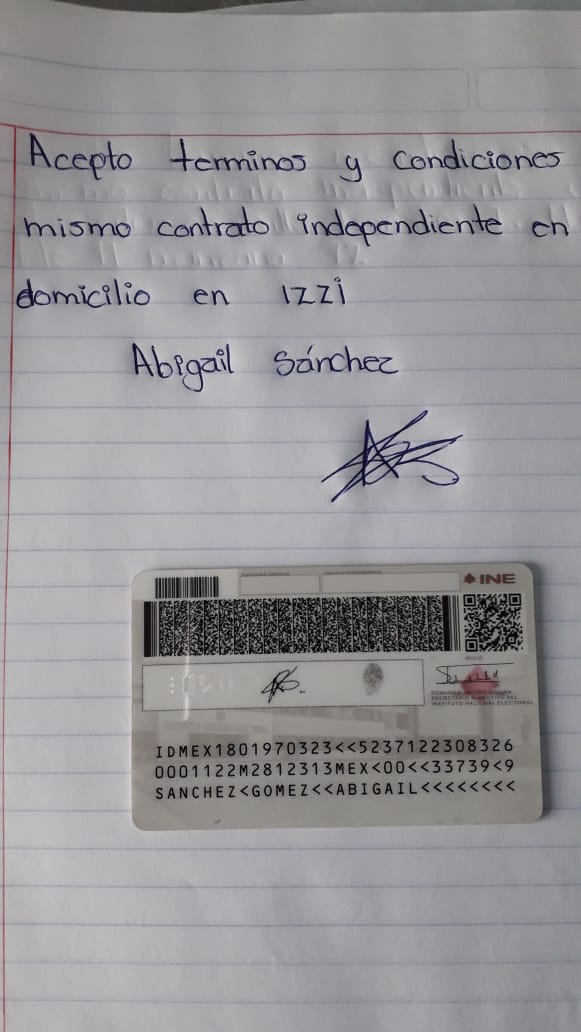 Acepto terminos y condiciones
mismo contrato independiente en
domicilio en izzi
Abigail Sánchez
INE
EDMUNDO JACOBO MOLINA
SECRETARIO EJECUTIVO DEL
INSTITUTO NACIONAL ELECTORAL
IDMEX1801970323<<5237122308326
0001122M2812313MEX<00<<33739<9
SANCHEZ<GOMEZ<<ABIGAIL<<<<<<<<